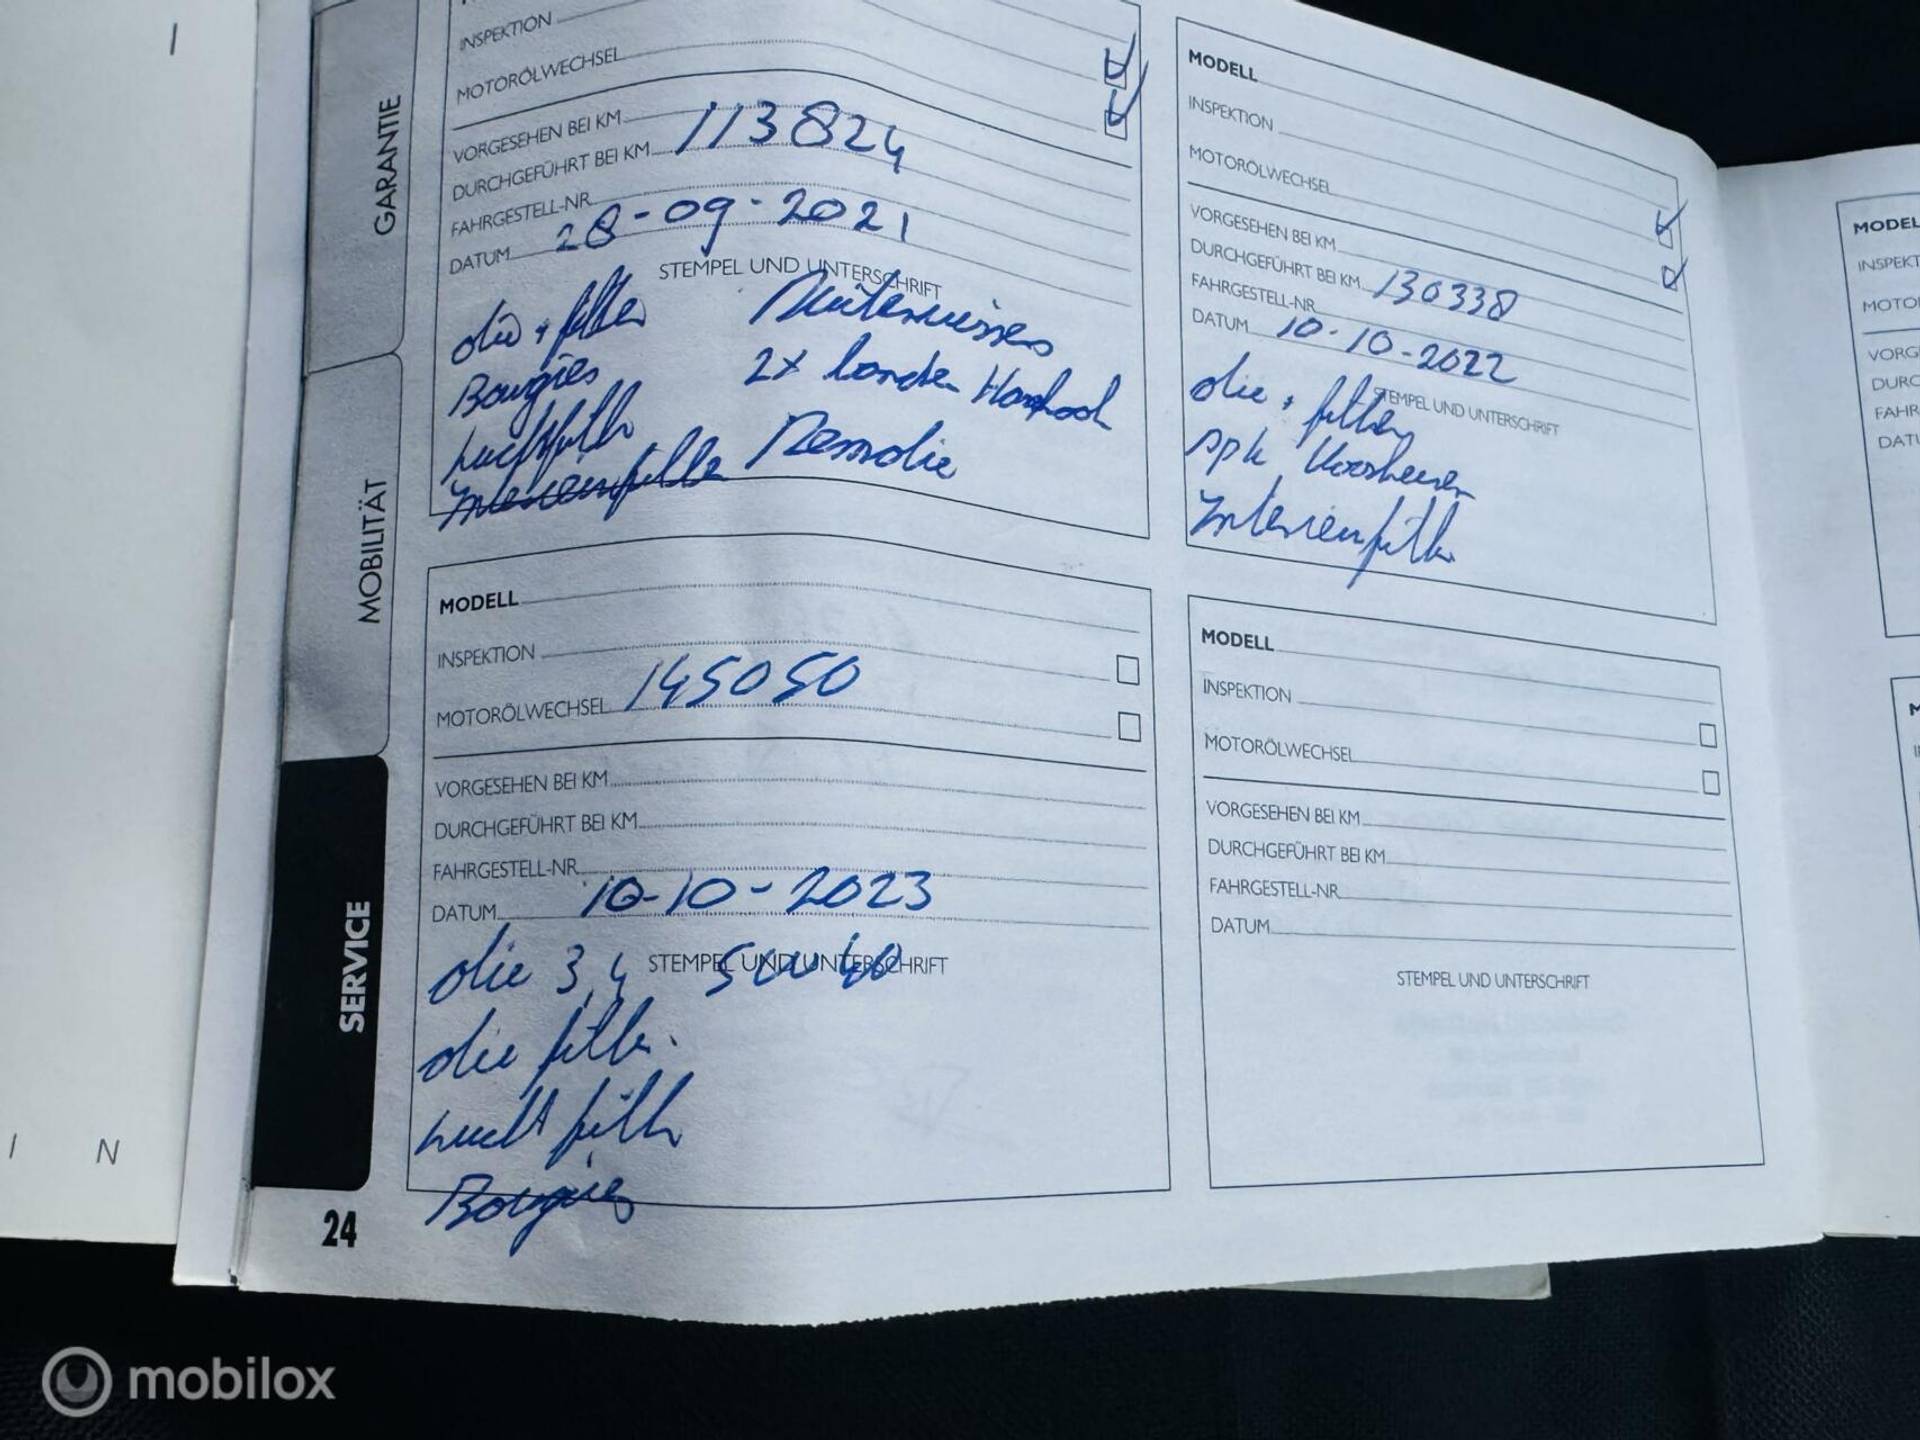 GARANTIE
MOBILITÄT
SERVICE
INSPEKTION
MOTORÖLWECHSEL
VORGESEHEN BEI KM
DURCHGEFÜHRT BEI KM 113824
FAHRGESTELL-NR.
DATUM 28-09-2021
STEMPEL UND UNTERSCHRIFT
olie + filter
Bougies
Luchtfilter
Interieurfilter
Ruitenwissers
2x banden Hankook
Remolie
MODELL
INSPEKTION
MOTORÖLWECHSEL
VORGESEHEN BEI KM
DURCHGEFÜHRT BEI KM 130338
FAHRGESTELL-NR.
DATUM 10-10-2022
STEMPEL UND UNTERSCHRIFT
olie + filter
Interieurfilter
MODELL
INSPEKTION
MOTORÖLWECHSEL 145050
VORGESEHEN BEI KM
DURCHGEFÜHRT BEI KM
FAHRGESTELL-NR.
DATUM 10-10-2023
STEMPEL UND UNTERSCHRIFT
olie 3,4 5W40
olie filter.
Lucht filter
Bougies
MODELL
INSPEKTION
MOTORÖLWECHSEL
VORGESEHEN BEI KM
DURCHGEFÜHRT BEI KM
FAHRGESTELL-NR.
DATUM
STEMPEL UND UNTERSCHRIFT
MODEL
INSPEKT
MOTO
VORG
DURC
FAHR
DATU
I N
24
mobilox